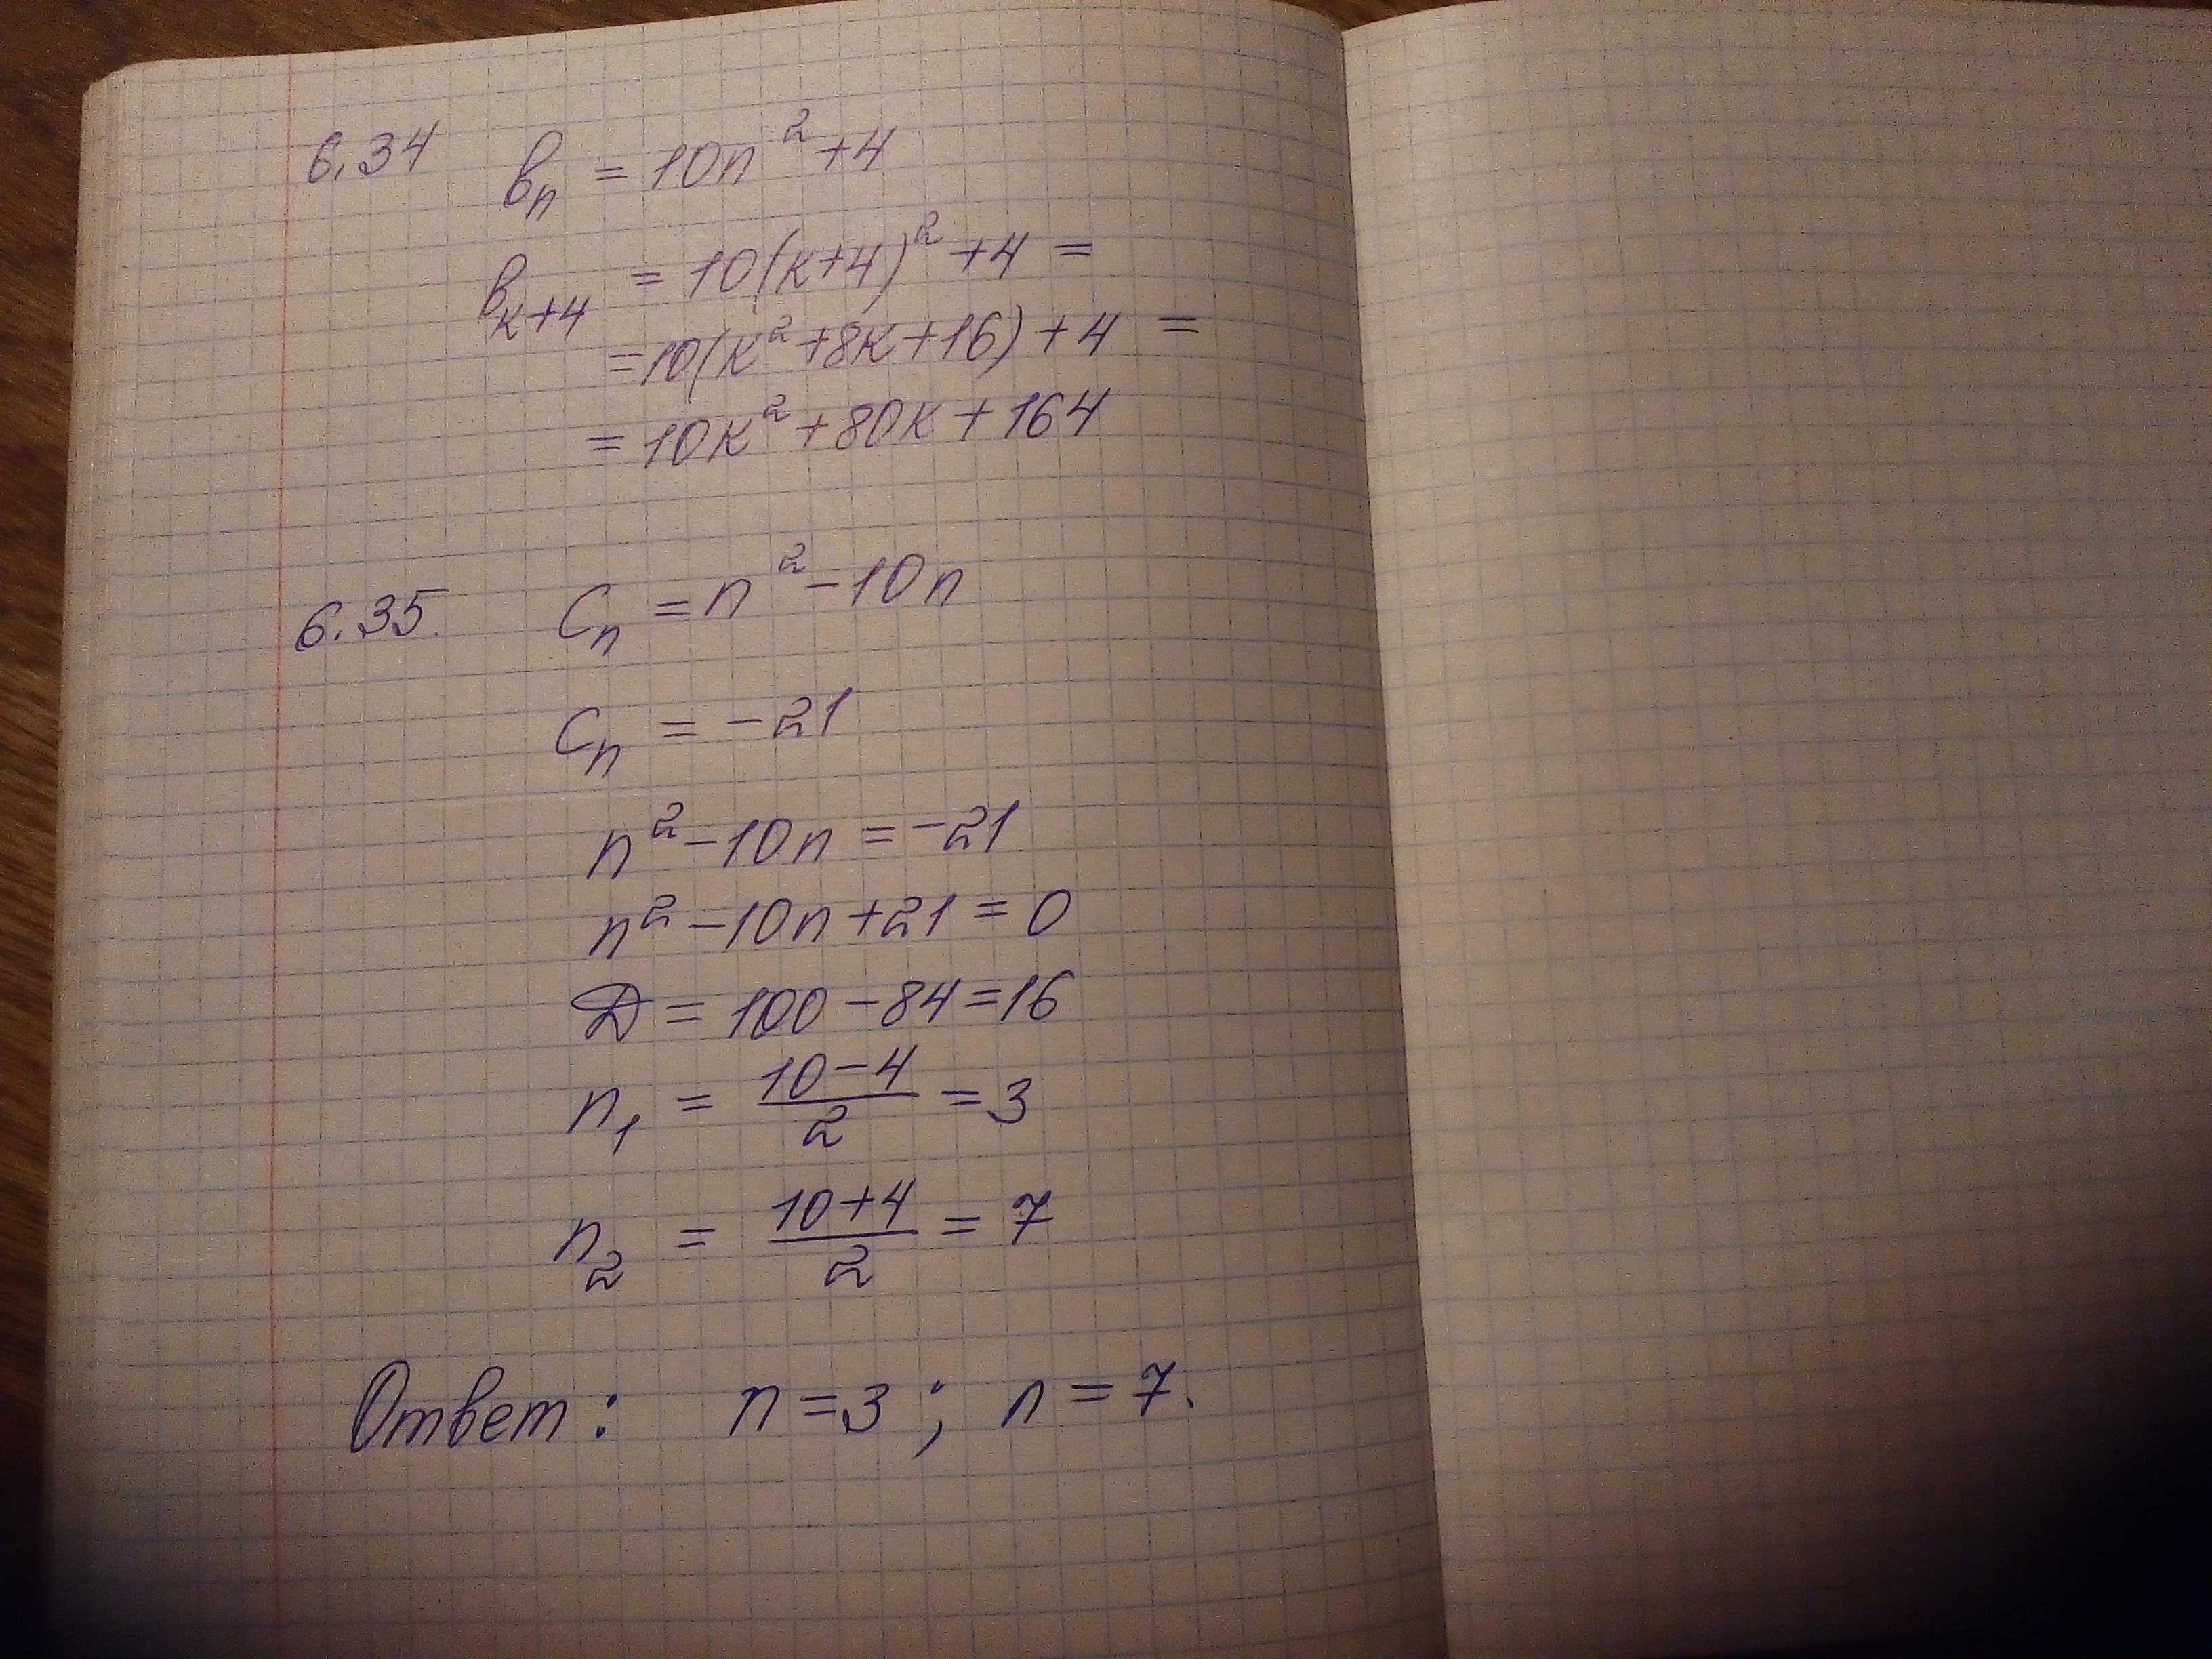 6.34 вₙ = 10n² + 4
вₖ₊₄ = 10(к+4)² + 4 =
= 10(к² + 8к + 16) + 4 =
= 10к² + 80к + 164
6.35. Cₙ = n² - 10n
Cₙ = -21
n² - 10n = -21
n² - 10n + 21 = 0
Д = 100 - 84 = 16
n₁ = (10 - 4)/2 = 3
n₂ = (10 + 4)/2 = 7
Ответ: n = 3; n = 7.